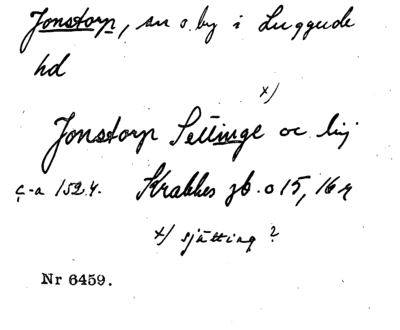 Jonstorp, sn o. by i Luggude
hd
x)
Jonstorp Settinge oc lij
c:a 1524. Krabbes jb. o 15, 16 r
x) sjätting ?
Nr 6459.